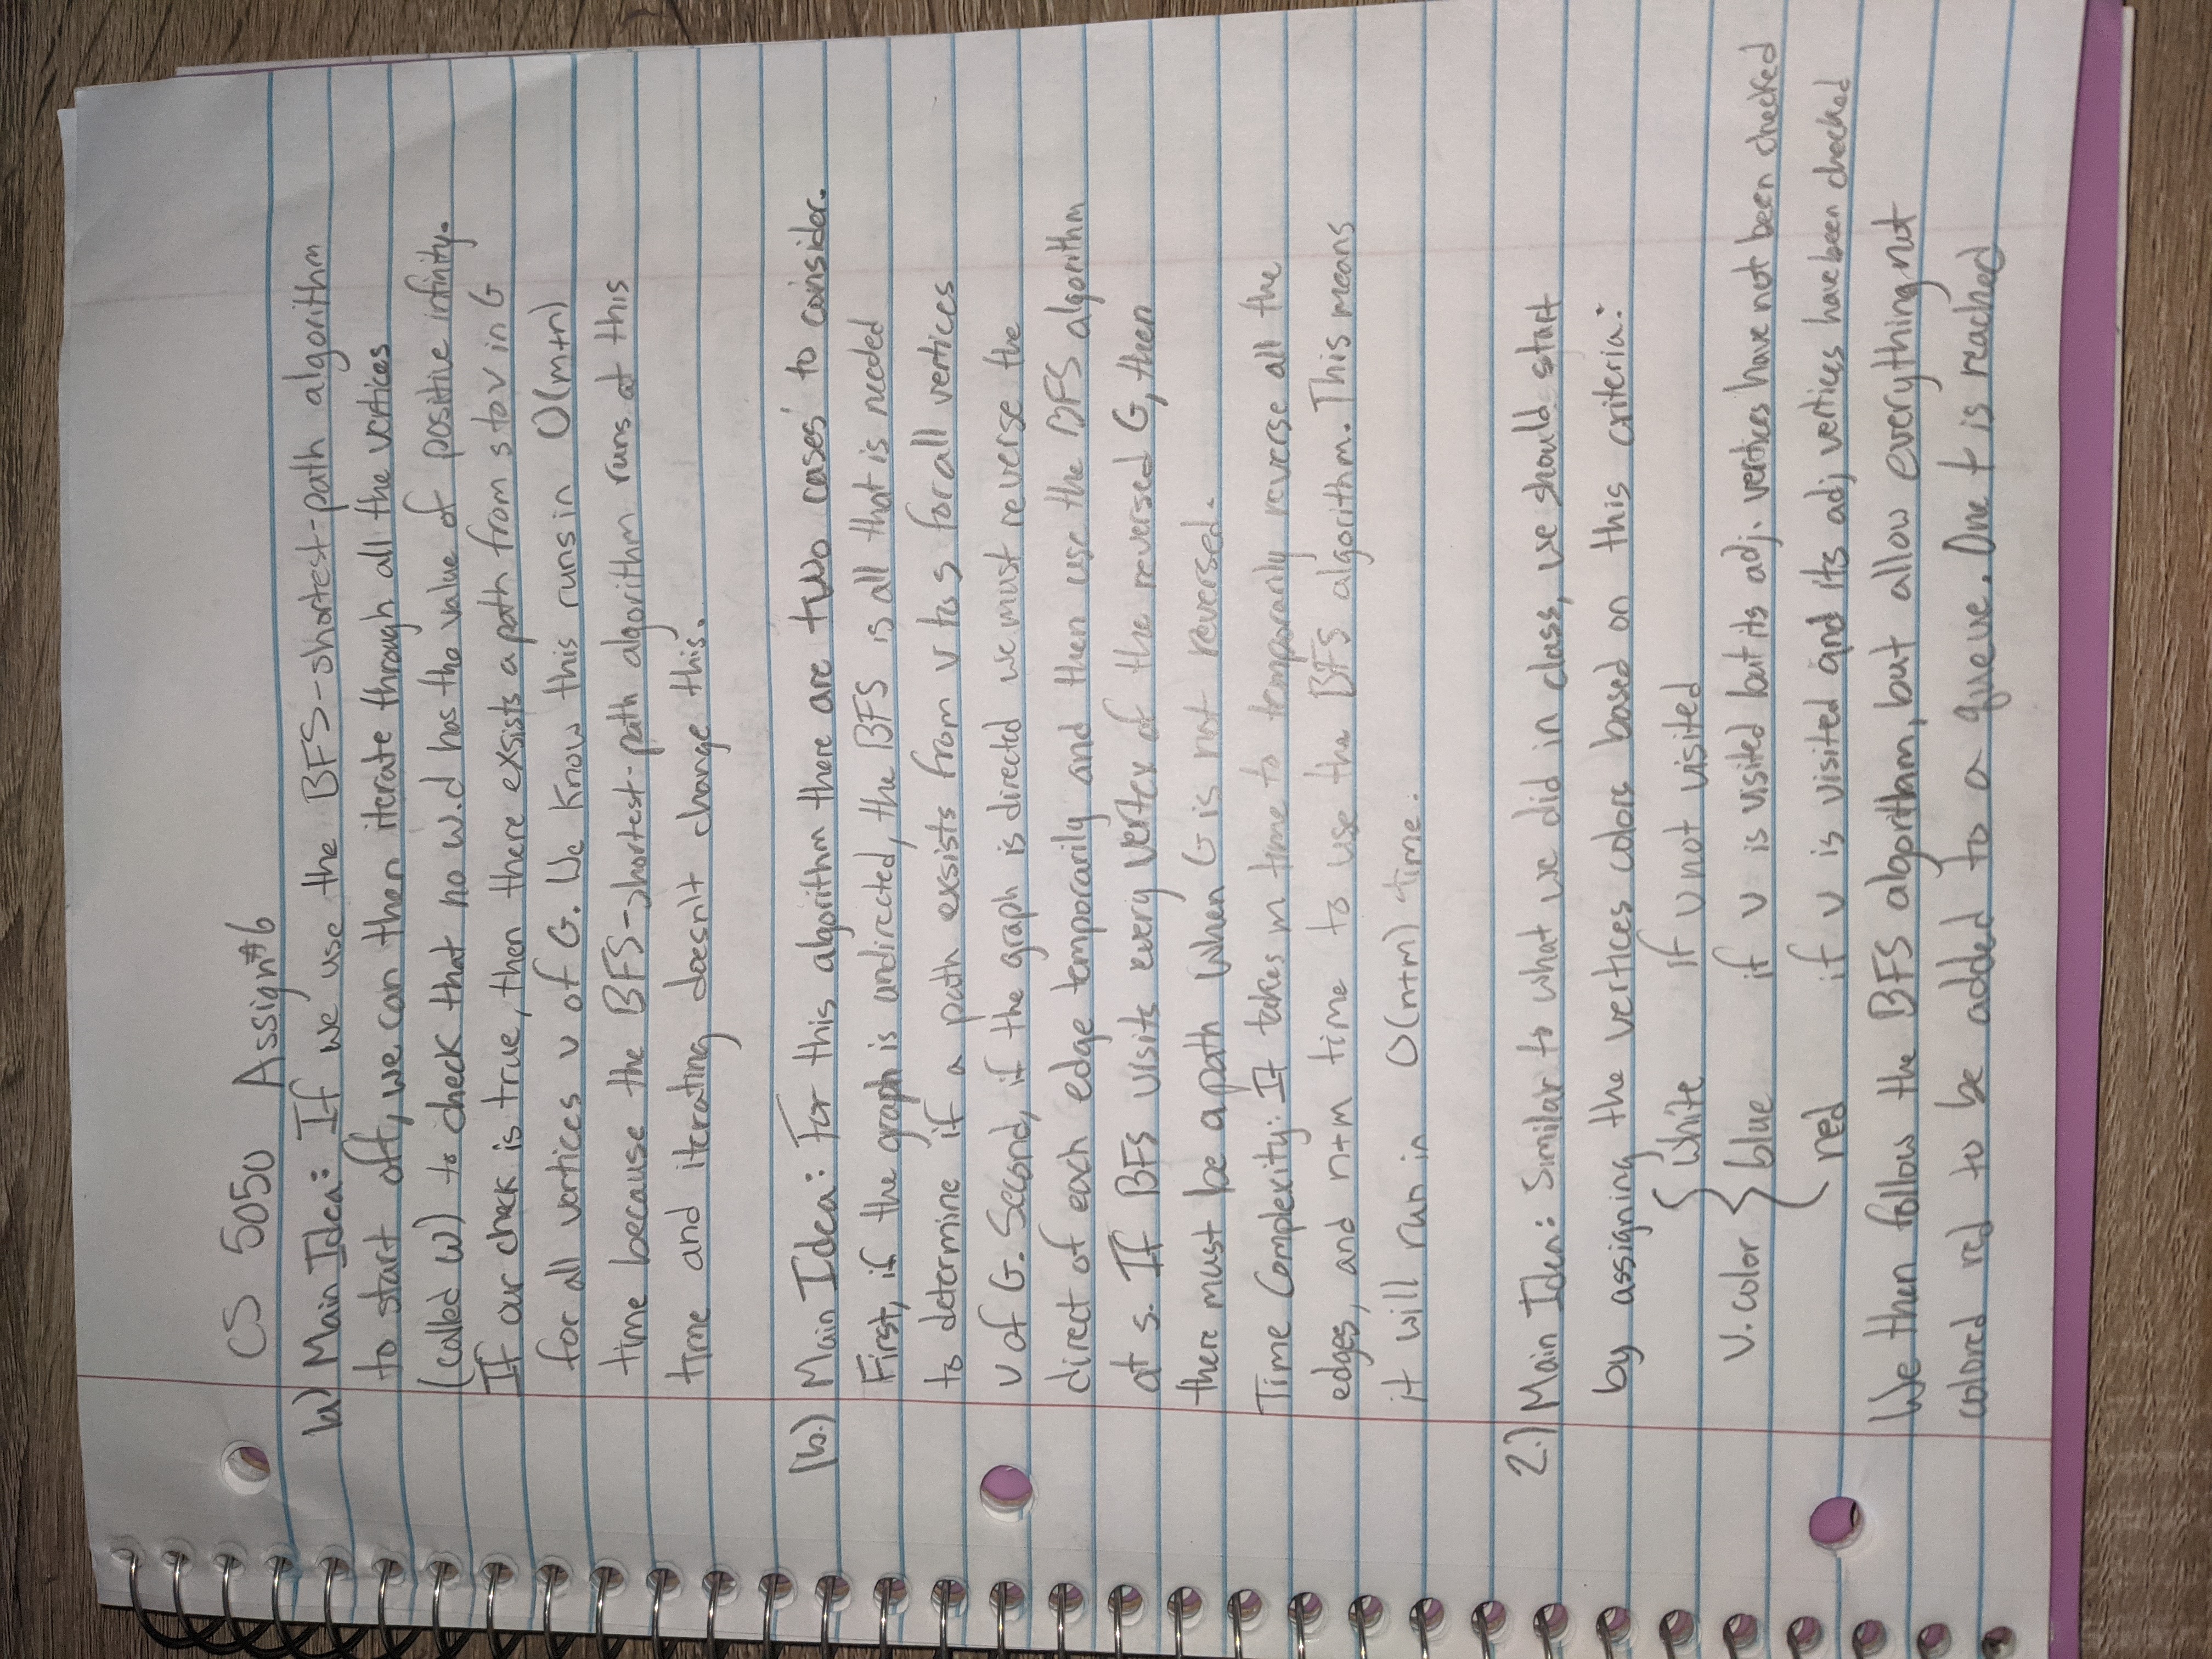 CS 5050 Assign#6
1a) Main Idea: If we use the BFS-shortest-path algorithm
to start off, we can then iterate through all the vertices
(called w) to check that no w.d has the value of positive infinity.
If our check is true, then there exsists a path from s to v in G
for all vertices v of G. We know this runs in O(m+n)
time because the BFS-shortest-path algorithm runs at this
time and iterating doesn't change this.
1b.) Main Idea: For this algorithm there are two cases to consider.
First, if the graph is undirected, the BFS is all that is needed
to determine if a path exsists from v to s for all vertices
v of G. Second, if the graph is directed we must reverse the
direct of each edge temporarily and then use the BFS algorithm
at s. If BFS visits every vertex of the reversed G, then
there must be a path when G is not reversed.
Time Complexity: It takes m time to temporarily reverse all the
edges, and n+m time to use the BFS algorithm. This means
it will run in O(n+m) time.
2.) Main Idea: Similar to what we did in class, we should start
by assigning the vertices colors based on this criteria:
white if v not visited
v.color { blue if v is visited but its adj. vertices have not been checked
red if v is visited and its adj vertices have been checked
We then follow the BFS algorithm, but allow everything not
colored red to be added to a queue. One t is reached